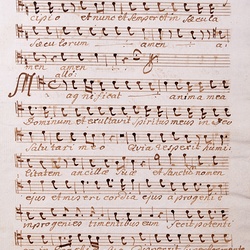 cipio et nunc et semper et in Sæcula
Sæculorum amen a
men amen
Magnificat anima mea
Dominum et exultavit Spiritus meus in Deo
Salutari meo Quia respexit humi
litatem ancillæ Suæ et Sanctum nomen
ejus et misericordia ejus a progenie
in progenies timentibus eum fecit potenti